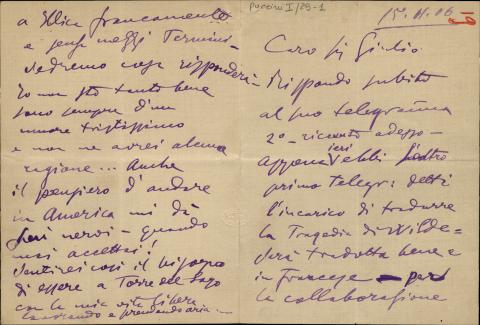 Puccini I/29-1
15. 11. 06
Caro Sig Giulio
Rispondo subito
al suo telegramma
2º - ricevuto adesso -
appena ieri ebbi l'altro
primo teleg: detti
l'incarico di tradurre
la Tragedia di Wilde -
Sarà tradotta bene e
in francese - per
la collaborazione
a Illica francamente
e senza mezzi termini -
vedremo cosa risponderà -
Io non sto tanto bene
sono sempre d'un
umore tristissimo
e non ne avrei alcuna
ragione... Anche
il pensiero d'andare
in America mi dà
nervi - quando
mai accettai!
Sentirei così il bisogno
di essere a Torre del Lago
con la mia vita libera
lavorando e prendendo aria